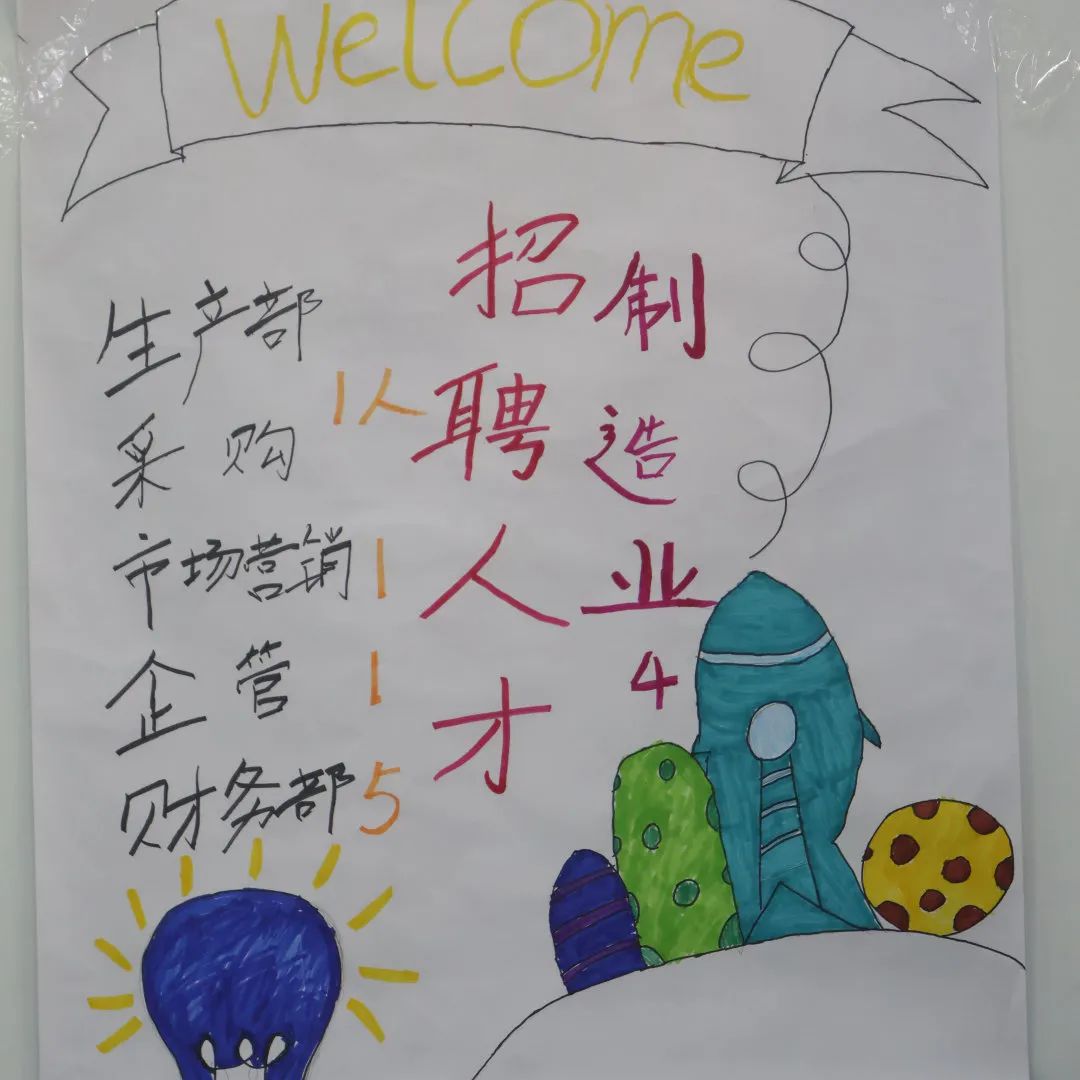 Welcome
制造业4
招聘人才
生产部
采购 1人
市场营销 1
企管 1
财务部 5